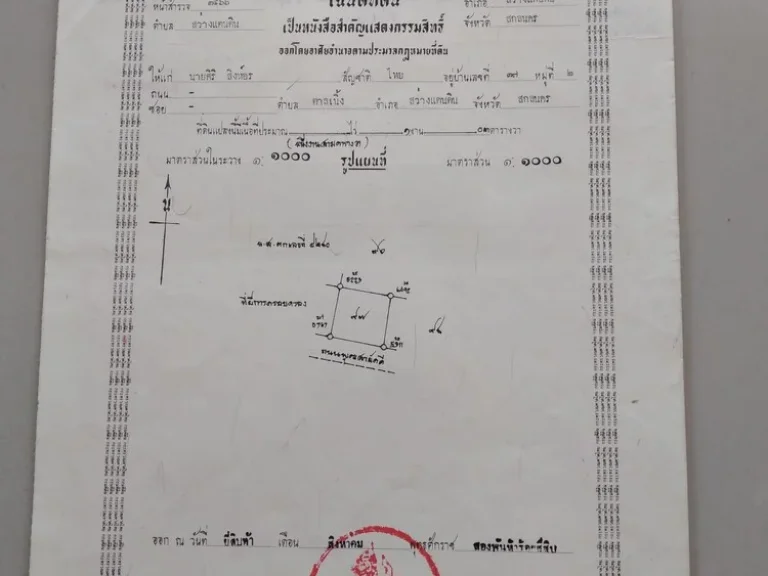 โฉนดที่ดิน
หน้าสำรวจ ๓๔๖๖ อำเภอ สว่างแดนดิน
ตำบล สว่างแดนดิน จังหวัด สกลนคร
เป็นหนังสือสำคัญแสดงกรรมสิทธิ์
ออกโดยอาศัยอำนาจตามประมวลกฎหมายที่ดิน
ให้แก่ นายศิริ สิงห์อร สัญชาติ ไทย อยู่บ้านเลขที่ ๓๗ หมู่ที่ ๒
ถนน -
ซอย - ตำบล ตาลเนิ้ง อำเภอ สว่างแดนดิน จังหวัด สกลนคร
ที่ดินแปลงนี้มีเนื้อที่ประมาณ ไร่ ๑ งาน ๐๓ ตารางวา
(หนึ่งงานสามตารางวา)
มาตราส่วนในระวาง ๑: ๑๐๐๐ รูปแผนที่ มาตราส่วน ๑: ๑๐๐๐
น
ที่มีการครอบครอง
๘๗
ออก ณ วันที่ ยี่สิบห้า เดือน สิงหาคม พุทธศักราช สองพันห้าร้อยสี่สิบ